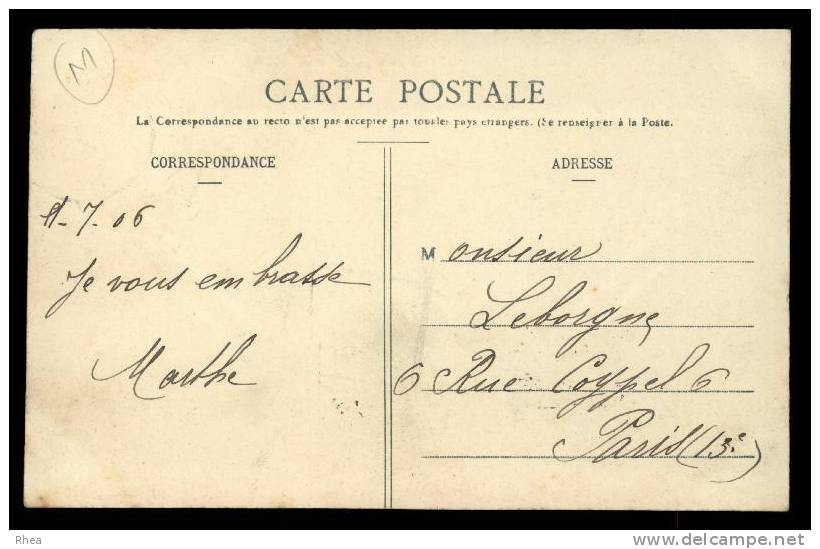 M
CARTE POSTALE
La Correspondance au recto n'est pas acceptée par tous les pays étrangers. (Se renseigner à la Poste.
CORRESPONDANCE
-7-06
Je vous embrasse
Marthe
ADRESSE
Monsieur
Leborgne
6 Rue Coypel 6
Paris (13e)
Rhea
delcampe.net